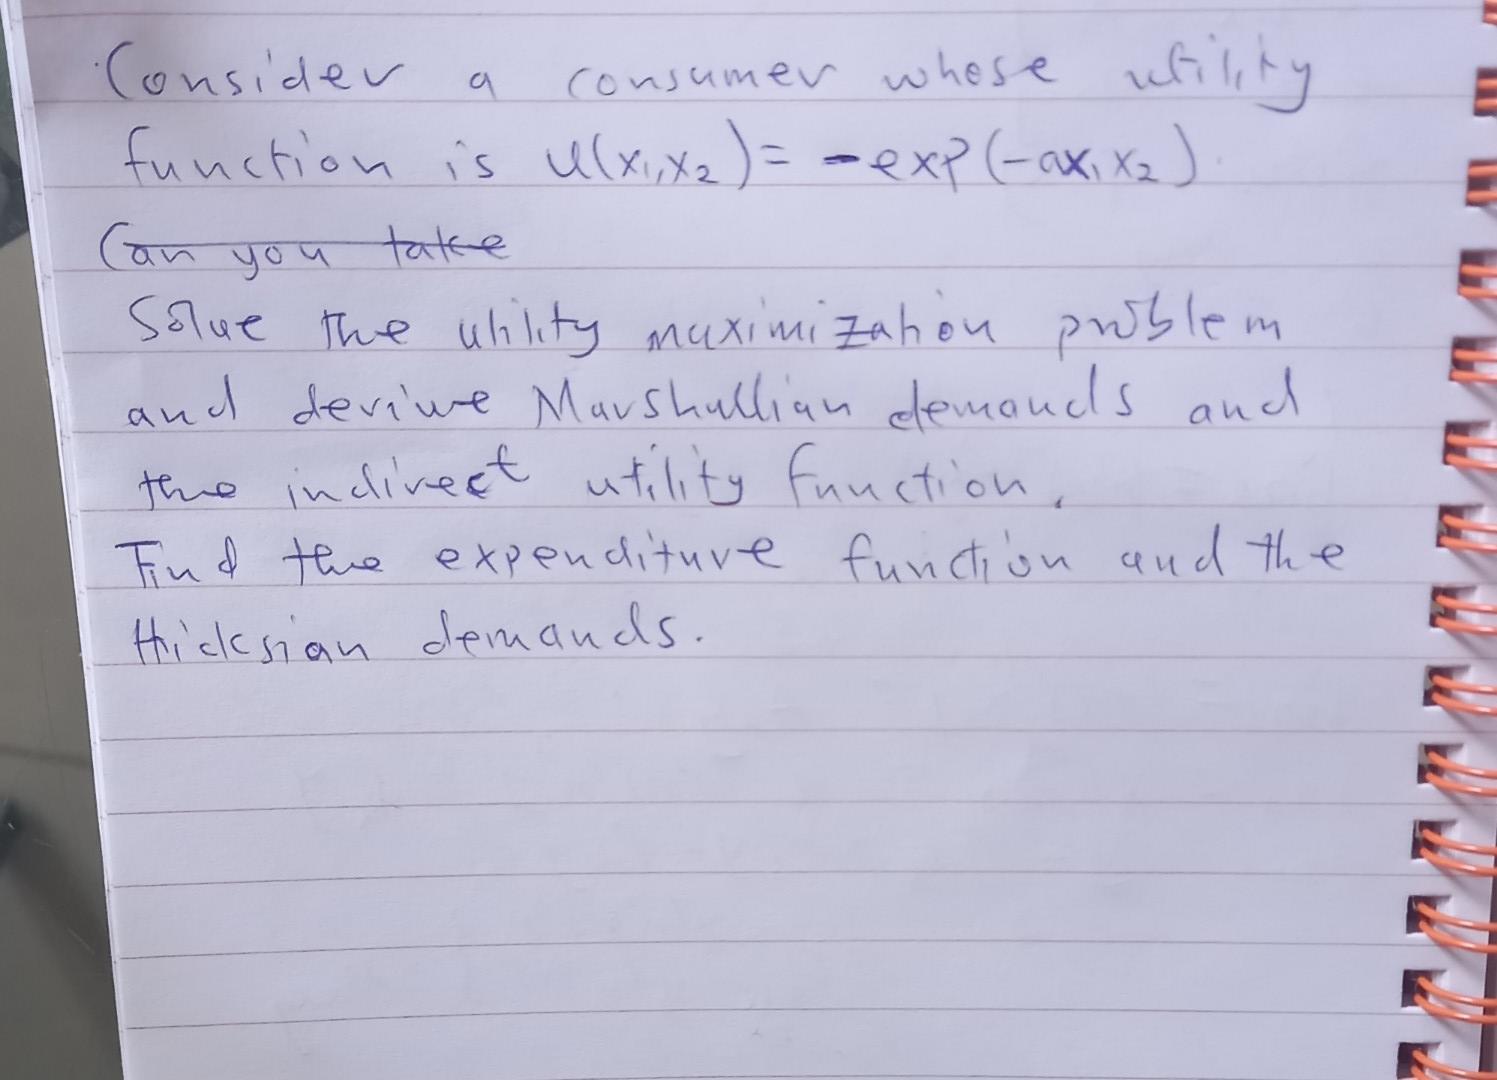 Consider a consumer whose utility
function is U(x₁,x₂) = -exp(-ax₁x₂).
Can you take
Solve the utility maximization problem
and derive Marshallian demands and
the indirect utility function.
Find the expenditure function and the
Hicksian demands.